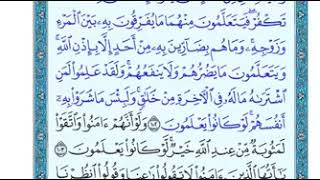 تَكْفُرْ فَيَتَعَلَّمُونَ مِنْهُمَا مَا يُفَرِّقُونَ بِهِۦ بَيْنَ ٱلْمَرْءِ
وَزَوْجِهِۦ وَمَا هُم بِضَآرِّينَ بِهِۦ مِنْ أَحَدٍ إِلَّا بِإِذْنِ ٱللَّهِ
وَيَتَعَلَّمُونَ مَا يَضُرُّهُمْ وَلَا يَنفَعُهُمْ وَلَقَدْ عَلِمُوا۟ لَمَنِ
ٱشْتَرَىٰهُ مَا لَهُۥ فِى ٱلْءَاخِرَةِ مِنْ خَلَٰقٍ وَلَبِئْسَ مَا شَرَوْا۟ بِهِۦٓ
أَنفُسَهُمْ لَوْ كَانُوا۟ يَعْلَمُونَ ١٠٢ وَلَوْ أَنَّهُمْ ءَامَنُوا۟ وَٱتَّقَوْا۟
لَمَثُوبَةٌ مِّنْ عِندِ ٱللَّهِ خَيْرٌ لَّوْ كَانُوا۟ يَعْلَمُونَ ١٠٣
يَٰٓأَيُّهَا ٱلَّذِينَ ءَامَنُوا۟ لَا تَقُولُوا۟ رَٰعِنَا وَقُولُوا۟ ٱنظُرْنَا